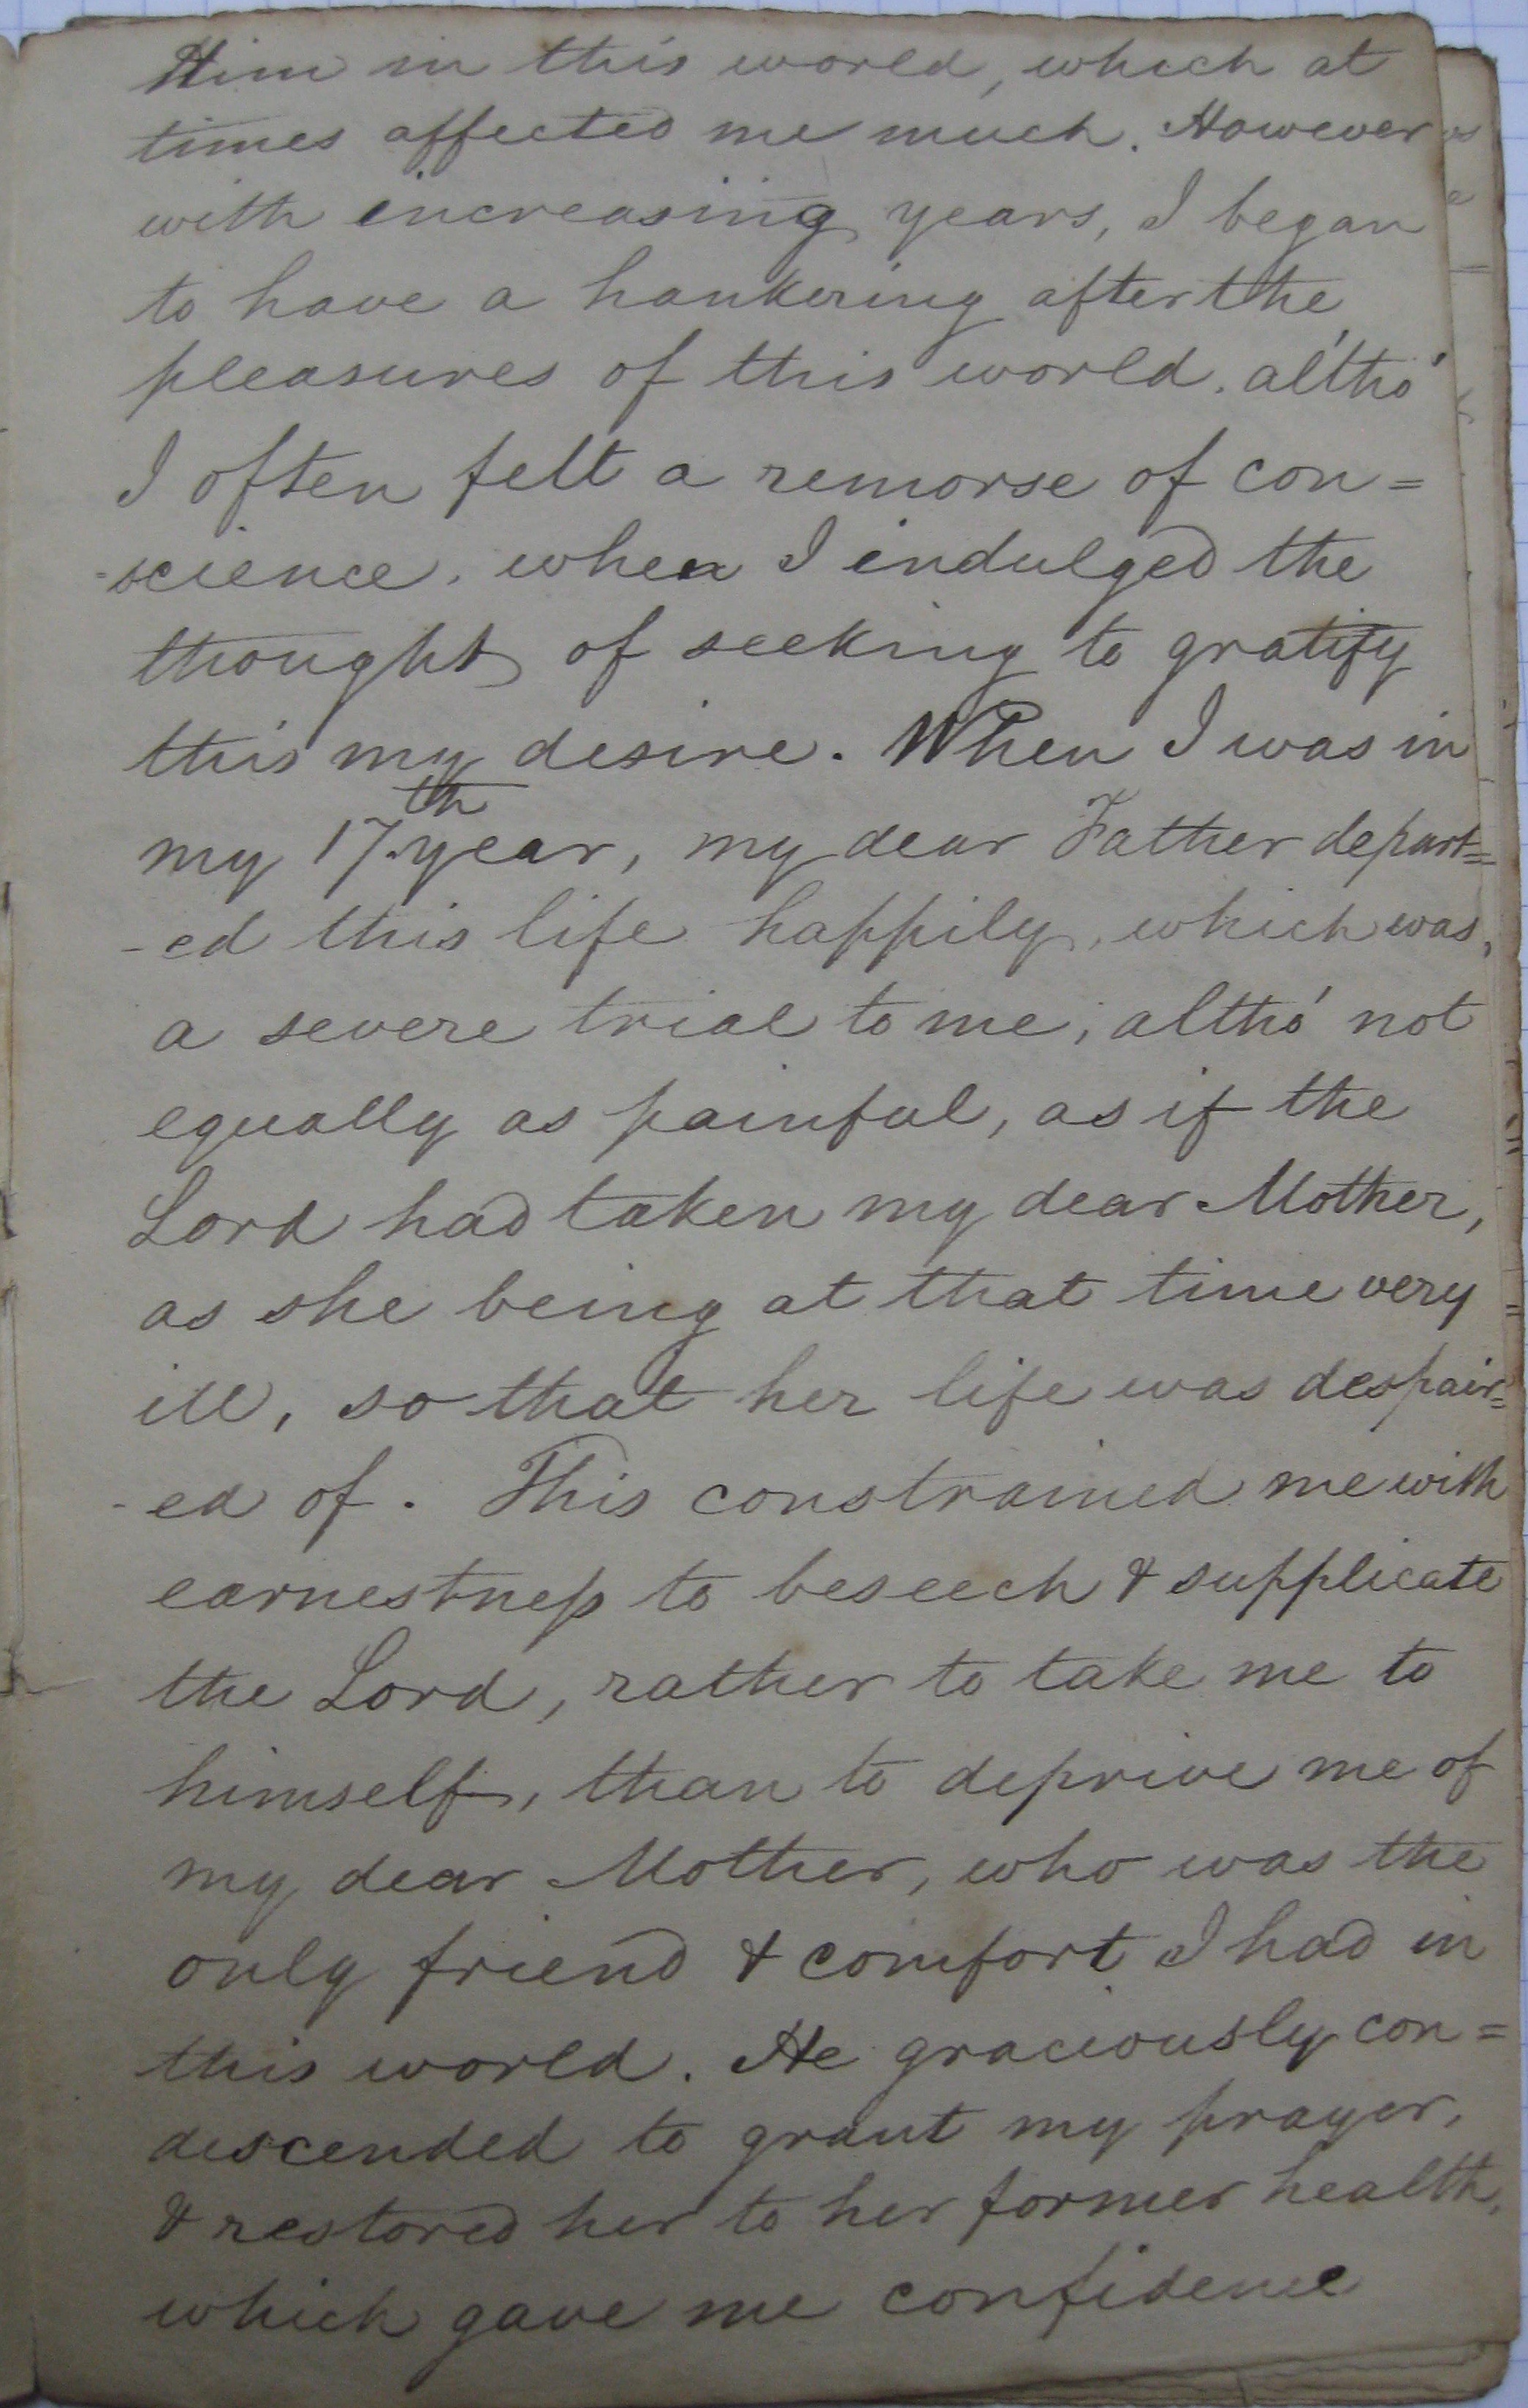 Him in this world, which at
times affected me much. However
with increasing years, I began
to have a hankering after the
pleasures of this world, altho'
I often felt a remorse of con=
-science, when I indulged the
thought of seeking to gratify
this my desire. When I was in
my 17th year, my dear Father depart=
-ed this life happily, which was,
a severe trial to me, altho' not
equally as painful, as if the
Lord had taken my dear Mother,
as she being at that time very
ill, so that her life was despair=
-ed of. This constrained me with
earnestness to beseech & supplicate
the Lord, rather to take me to
himself, than to deprive me of
my dear Mother, who was the
only friend & comfort I had in
this world. He graciously con=
descended to grant my prayer,
& restored her to her former health,
which gave me confidence